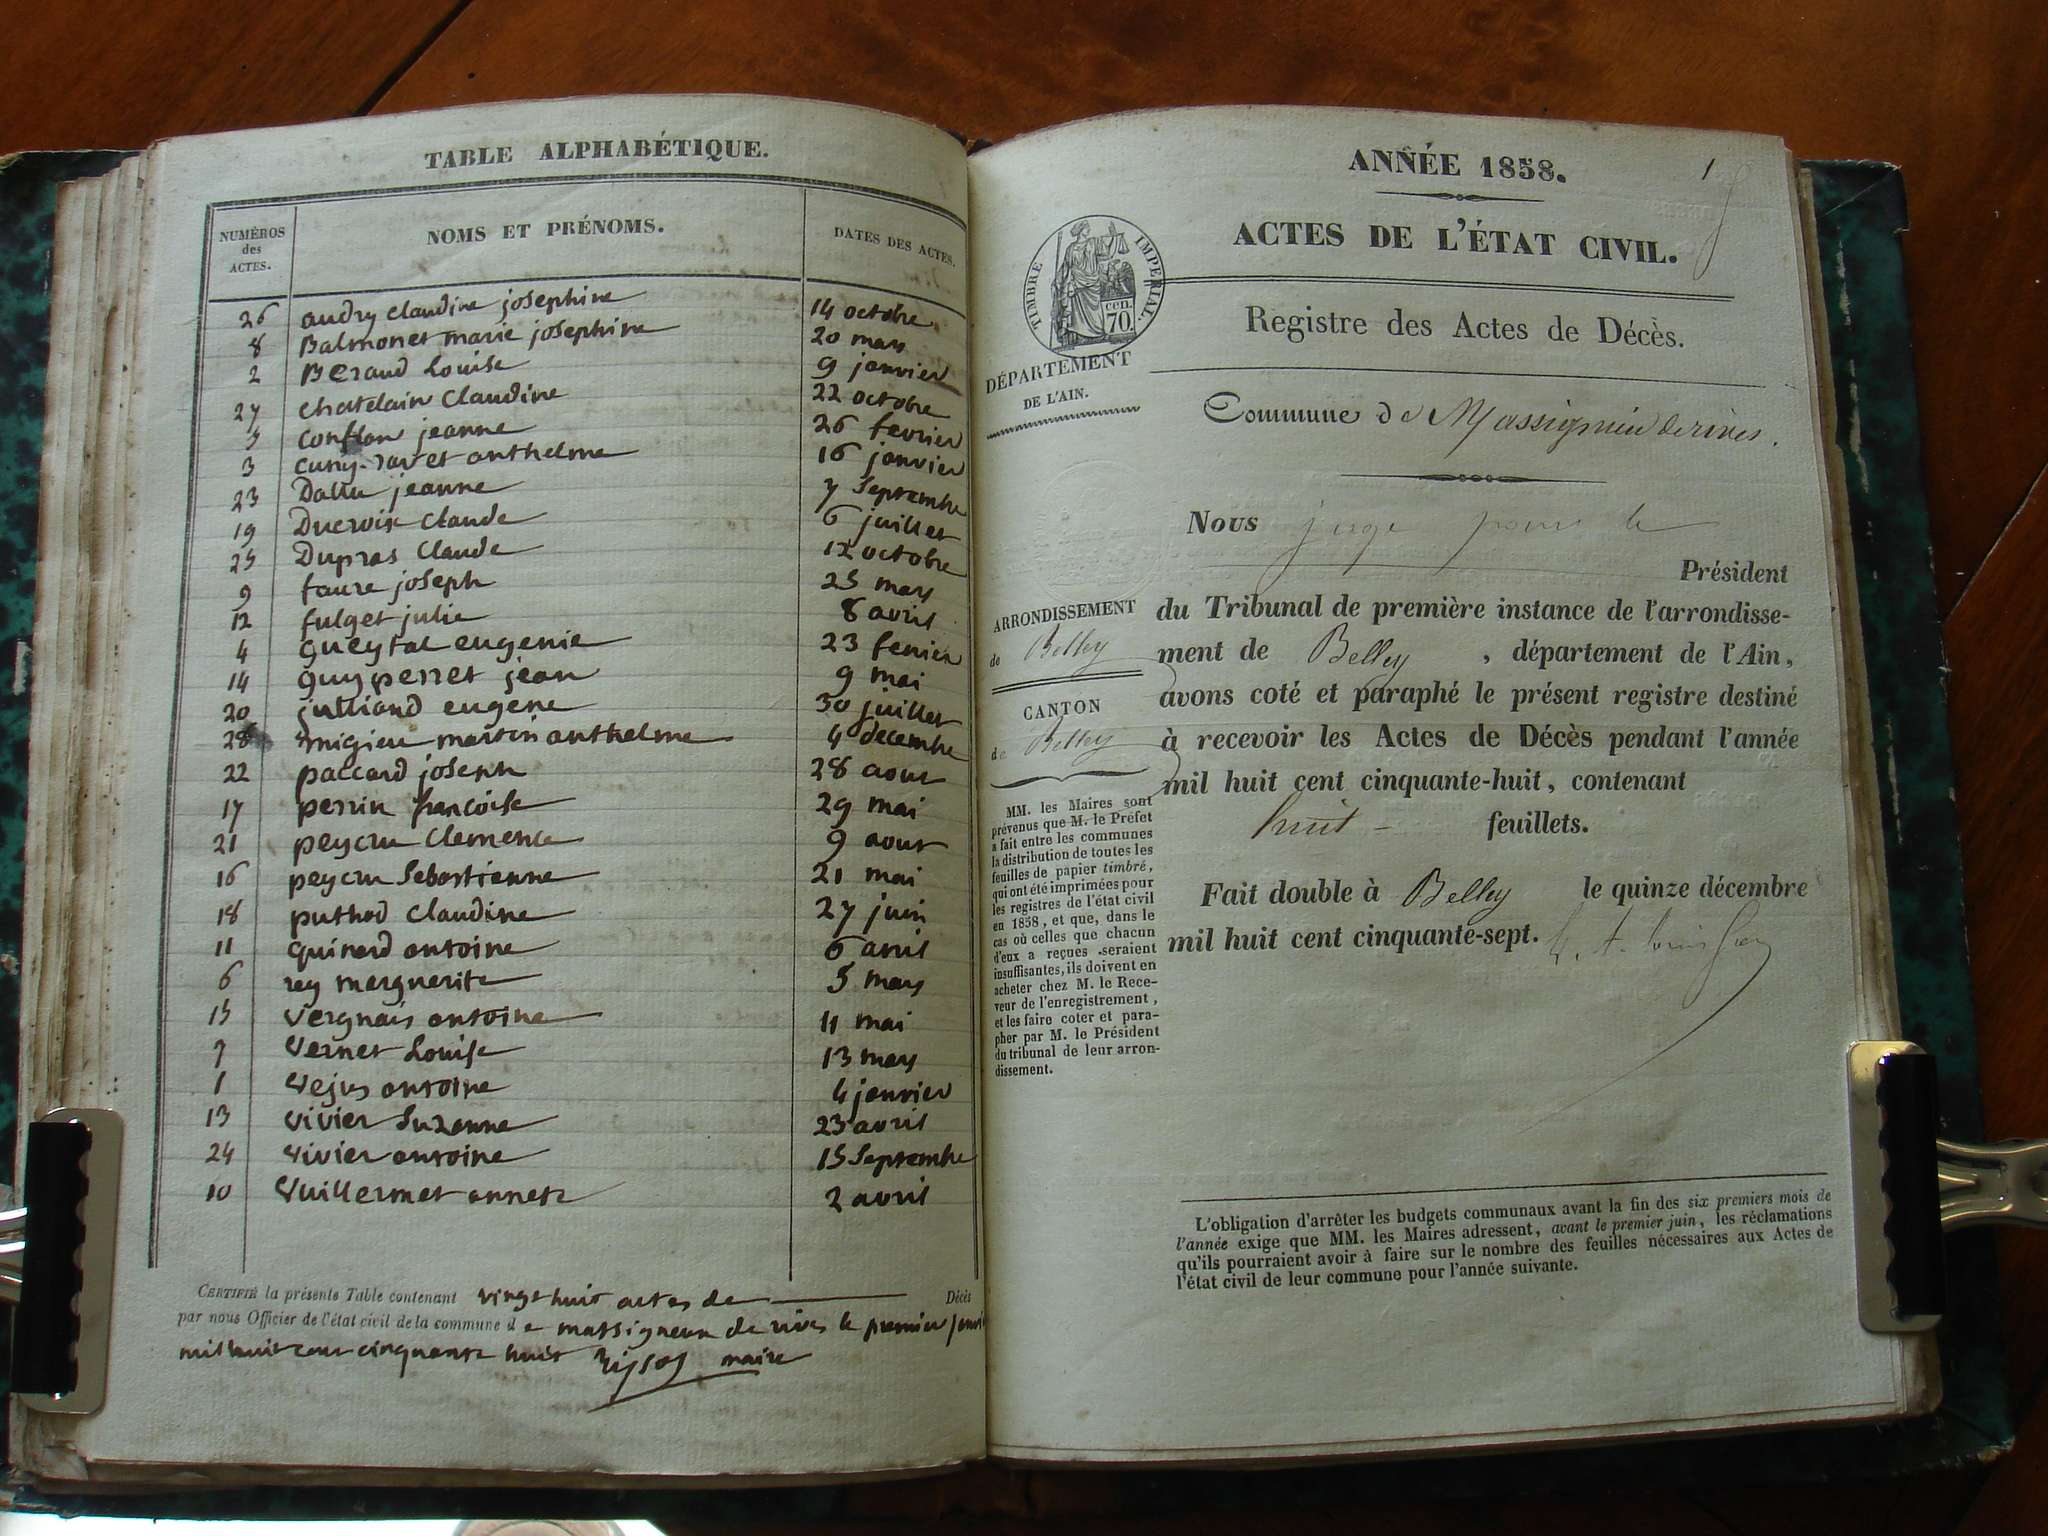 TABLE ALPHABÉTIQUE.
NUMÉROS des ACTES. NOMS ET PRÉNOMS. DATES DES ACTES.
26 audry claudine josephine 14 octobre
8 Balmonet marie josephine 20 mars
2 Beraud Louise 9 janvier
27 chatelain Claudine 22 octobre
5 jeanne 26 fevrier
3 anthelme 16 janvier
23 jeanne 7 Septembre
19 Ducroix Claude 6 juillet
25 Dupras Claude 12 octobre
9 faure joseph 25 mars
12 fulget julie 8 avril
4 gueytat eugenie 23 fevrier
14 guy perret jean 9 mai
20 julliand eugene 30 juillet
28 migieu martin anthelme 4 decembre
22 paccard joseph 28 aout
17 perrin françoise 29 mai
21 peycru Clemence 9 aout
16 peycru Sebastienne 21 mai
18 puthod Claudine 27 juin
11 quinard antoine 6 avril
6 rey marguerite 5 mars
15 vergnais antoine 11 mai
7 vernet Louise 13 mars
1 vejus antoine 4 janvier
13 vivier Suzanne 23 avril
24 vivier antoine 15 Septembre
10 vuillermet annete 2 avril
CERTIFIÉ la présente Table contenant vingt huit actes de Décès
par nous Officier de l'état civil de la commune de massigneux de rives le premier
mil huit cent cinquante huit maire
ANNÉE 1858. 1
ACTES DE L'ÉTAT CIVIL.
Registre des Actes de Décès.
TIMBRE IMPÉRIAL.
cen. 70.
DÉPARTEMENT
DE L'AIN.
Commune de Massignieu de rives.
Nous juge pour le
Président
du Tribunal de première instance de l'arrondisse-
ment de Belley, département de l'Ain,
avons coté et paraphé le présent registre destiné
à recevoir les Actes de Décès pendant l'année
mil huit cent cinquante-huit, contenant
huit feuillets.
Fait double à Belley le quinze décembre
mil huit cent cinquante-sept.
ARRONDISSEMENT
de Belley
CANTON
de Belley
MM. les Maires sont
prévenus que M. le Préfet
a fait entre les communes
la distribution de toutes les
feuilles de papier timbré,
qui ont été imprimées pour
les registres de l'état civil
en 1858, et que, dans le
cas où celles que chacun
d'eux a reçues seraient
insuffisantes, ils doivent en
acheter chez M. le Rece-
veur de l'enregistrement,
et les faire coter et para-
pher par M. le Président
du tribunal de leur arron-
dissement.
L'obligation d'arrêter les budgets communaux avant la fin des six premiers mois de
l'année exige que MM. les Maires adressent, avant le premier juin, les réclamations
qu'ils pourraient avoir à faire sur le nombre des feuilles nécessaires aux Actes de
l'état civil de leur commune pour l'année suivante.